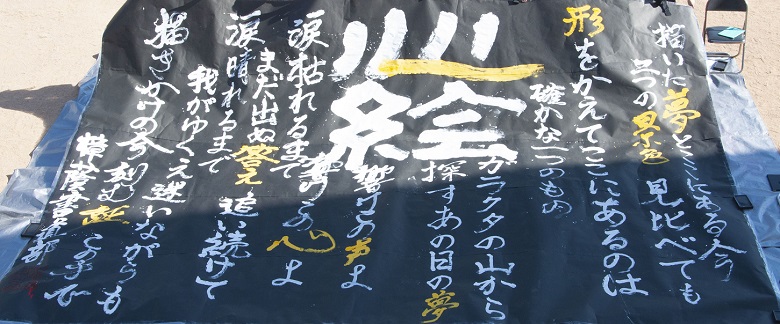 描いた夢とここにある今
二つの景色 見比べても
形をかえてここにあるのは
確かな一つのもの
ガラクタの山から
探すあの日の夢
心絵
響けこの声よ
響けこの心よ
涙枯れるまで
まだ出ぬ答え 追い続けて
涙晴れるまで
我がゆくえ 迷いながらも
描きかけの今 刻む 証 この手で
書道部